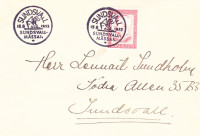 SUNDSVALL
SUNDSVALL-
MÄSSAN
SUNDSVALL
SUNDSVALL-
MÄSSAN
Herr Lennart Sundholm
Södra Allén 35 B3
Sundsvall